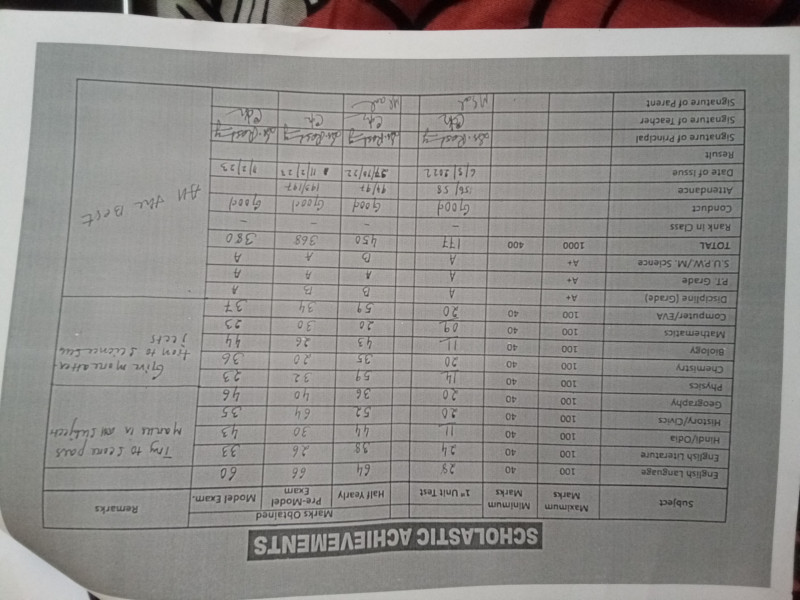 SCHOLASTIC ACHIEVEMENTS
Subject Maximum Marks Minimum Marks Marks Obtained Remarks
1st Unit Test Half Yearly Pre-Model Exam Model Exam.
English Language 100 40 28 64 66 60
English Literature 100 40 24 38 26 33
Hindi/Odia 100 40 11 44 30 43
History/Civics 100 40 20 52 64 35
Geography 100 40 20 36 40 46
Physics 100 40 14 59 32 23
Chemistry 100 40 20 35 20 36
Biology 100 40 11 43 26 44
Mathematics 100 40 09 20 30 23
Computer/EVA 100 40 20 59 34 37
Discipline (Grade) A+ A B B A
PT. Grade A+ A A A A
S.U.P.W./M. Science A+ A B A A
TOTAL 1000 400 177 450 368 380
Rank in Class - - - -
Conduct Good Good Good Good
Attendance
Date of Issue 6/8/2022
Result
Signature of Principal
Signature of Teacher
Signature of Parent
Try to score pass
Marks in all subject
Give more atten-
tion to science sub
jects
All the Best